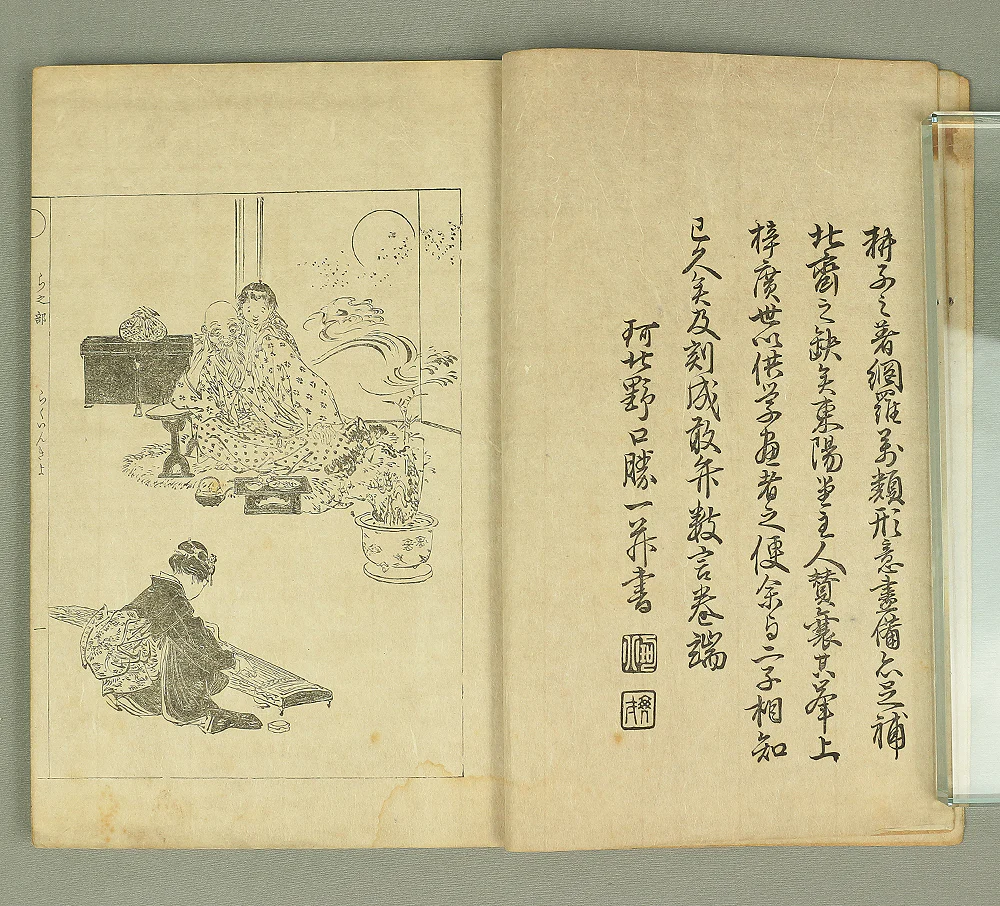 耕子之著網羅万類形意畫備亦足補
北齋之缺矣東陽堂主人賛襄其挙上
梓廣世以供学畫者之便余与二子相知
已久矣及刻成敢弁数言卷端
珂北野口勝一并書
ら之部
らくいんきよ
一